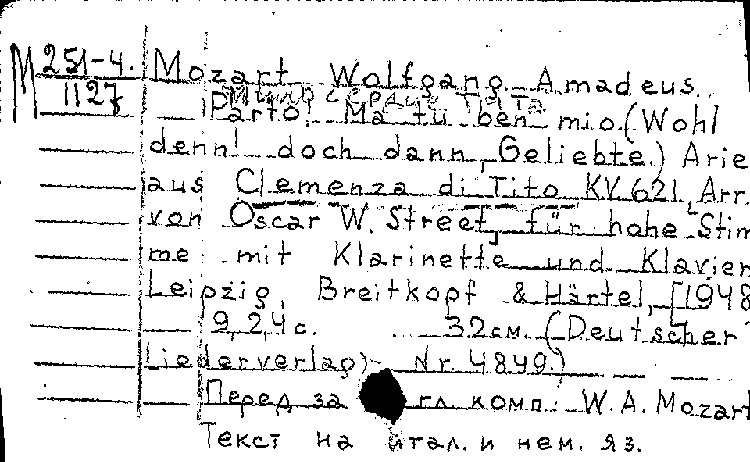 М 251-4. Mozart, Wolfgang Amadeus.
1127 Милосердие Тита
Parto! Ma tu ben mio.(Wohl
denn! doch dann, Geliebte.) Arie
aus Clemenza di Tito KV.621, Arr.
von Oscar W. Street, für hohe Stim
me mit Klarinette und Klavier
Leipzig, Breitkopf & Härtel, [1948
9,2,4 с. 32см. (Deutscher
Liederverlag) Nr. 4849.)
Перед за гл. комп.: W.A. Mozart
Текст на итал. и нем. яз.